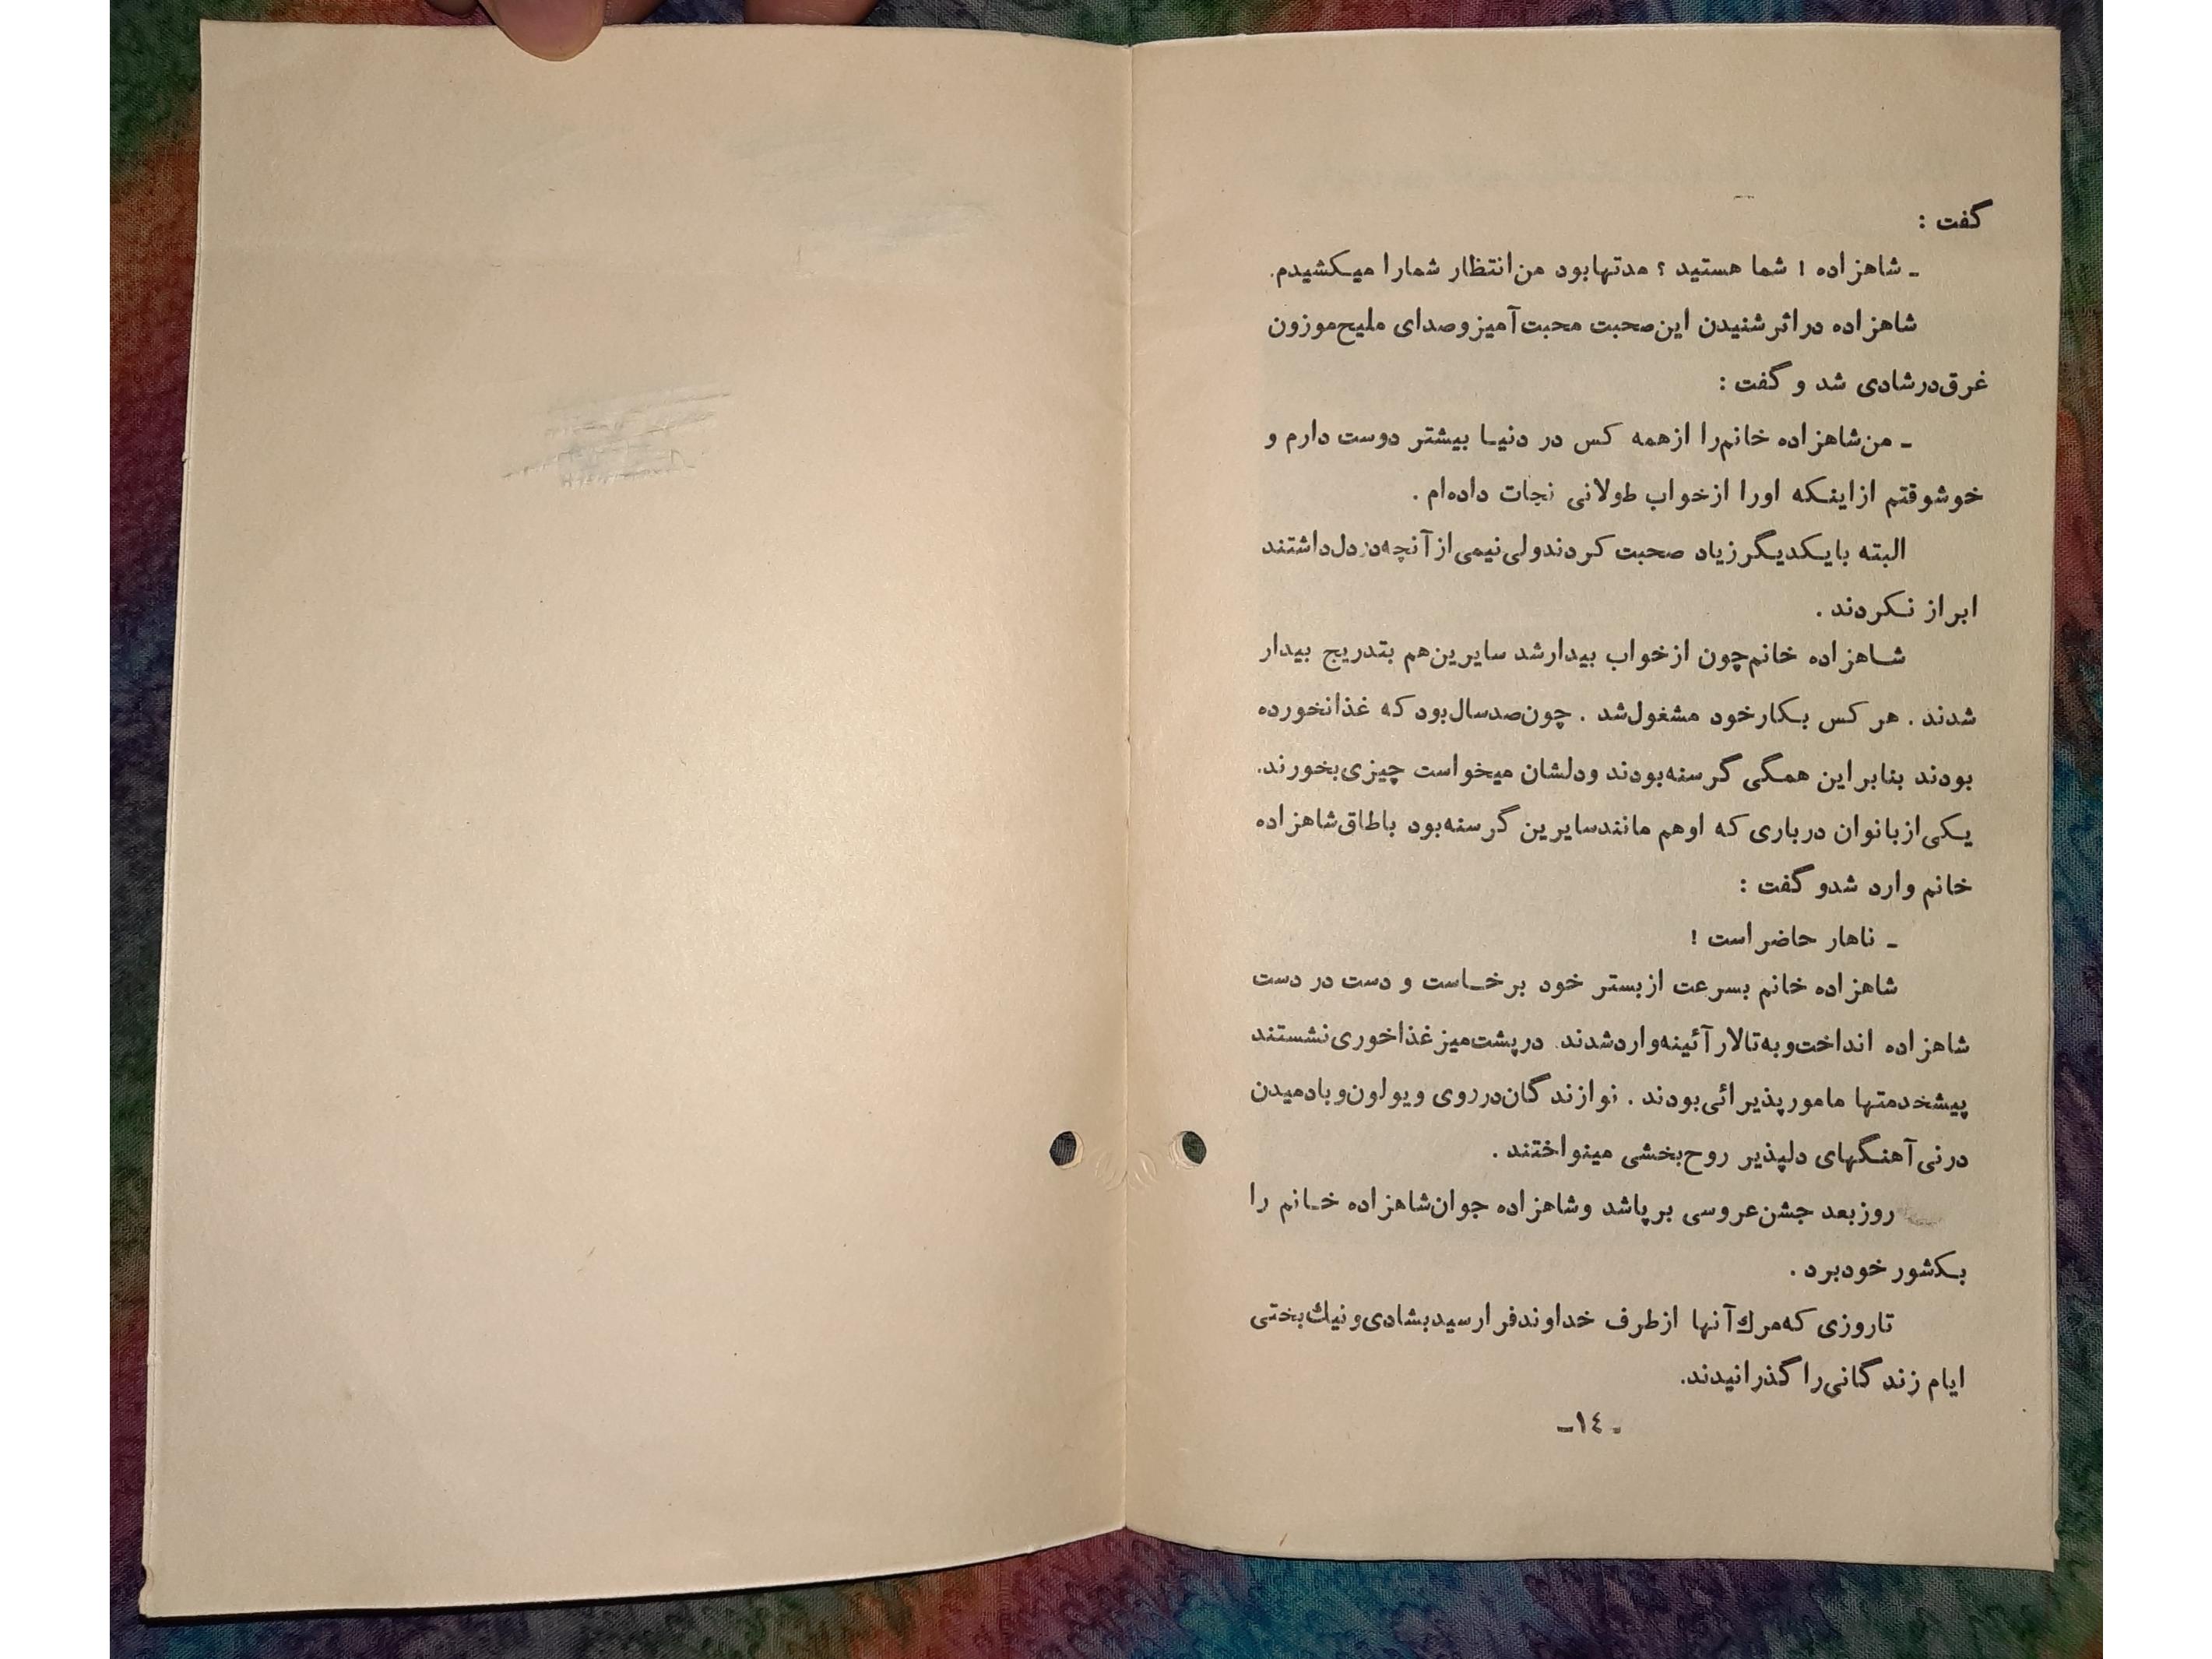 گفت :
ـ شاهزاده ! شما هستید ؟ مدتهابود من‌انتظار شمارا میکشیدم.
شاهزاده دراثرشنیدن این‌صحبت محبت‌آمیزوصدای ملیح‌موزون
غرق‌درشادی شد و گفت :
ـ من‌شاهزاده خانم‌را ازهمه کس در دنیا بیشتر دوست دارم و
خوشوقتم ازاینکه اورا ازخواب طولانی نجات داده‌ام .
البته بایکدیگرزیاد صحبت کردندولی‌نیمی‌ازآنچه‌دردل‌داشتند
ابراز نکردند .
شاهزاده خانم‌چون ازخواب بیدارشد سایرین‌هم بتدریج بیدار
شدند . هر کس بکارخود مشغول‌شد . چون‌صدسال‌بود که غذانخورده
بودند بنابراین همگی گرسنه‌بودند ودلشان میخواست چیزی‌بخورند.
یکی‌ازبانوان درباری که اوهم مانندسایرین گرسنه‌بود باطاق‌شاهزاده
خانم وارد شدو گفت :
ـ ناهار حاضراست !
شاهزاده خانم بسرعت ازبستر خود برخاست و دست در دست
شاهزاده انداخت‌وبه‌تالارآئینه‌واردشدند. درپشت‌میزغذاخوری‌نشستند
پیشخدمتها مامورپذیرائی‌بودند . نوازندگان‌درروی ویولون‌وبادمیدن
درنی‌آهنگهای دلپذیر روح‌بخشی مینواختند .
روزبعد جشن‌عروسی برپاشد وشاهزاده جوان‌شاهزاده خانم را
بکشور خودبرد .
تاروزی که‌مرك‌آنها ازطرف خداوندفرارسیدبشادی‌ونیك‌بختی
ایام زندگانی‌راگذرانیدند.
ـ١٤ـ